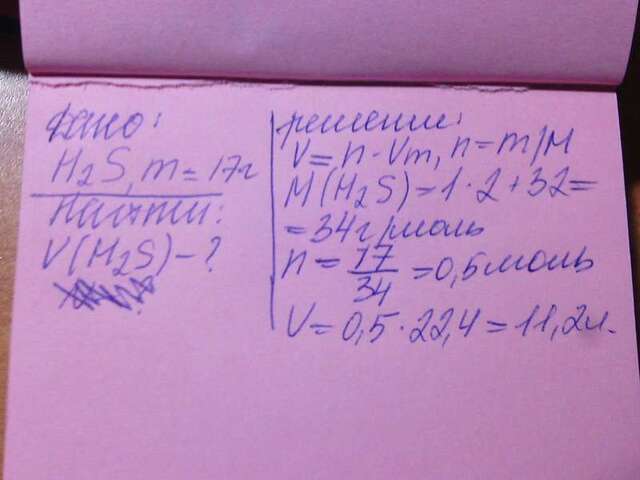 Дано:
H2S, m = 17г
Найти:
V(H2S) - ?
решение:
V = n · Vm, n = m/M
M(H2S) = 1 · 2 + 32 =
= 34г/моль
n = 17/34 = 0,5моль
V = 0,5 · 22,4 = 11,2л.